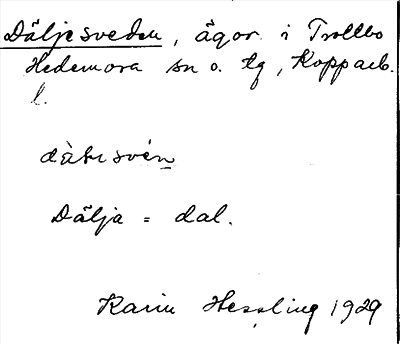 Däljesveden, ägor i Trollbo
Hedemora sn o. tg, Kopparb.
l.
Dälja = dal.
Karin Hessling 1929